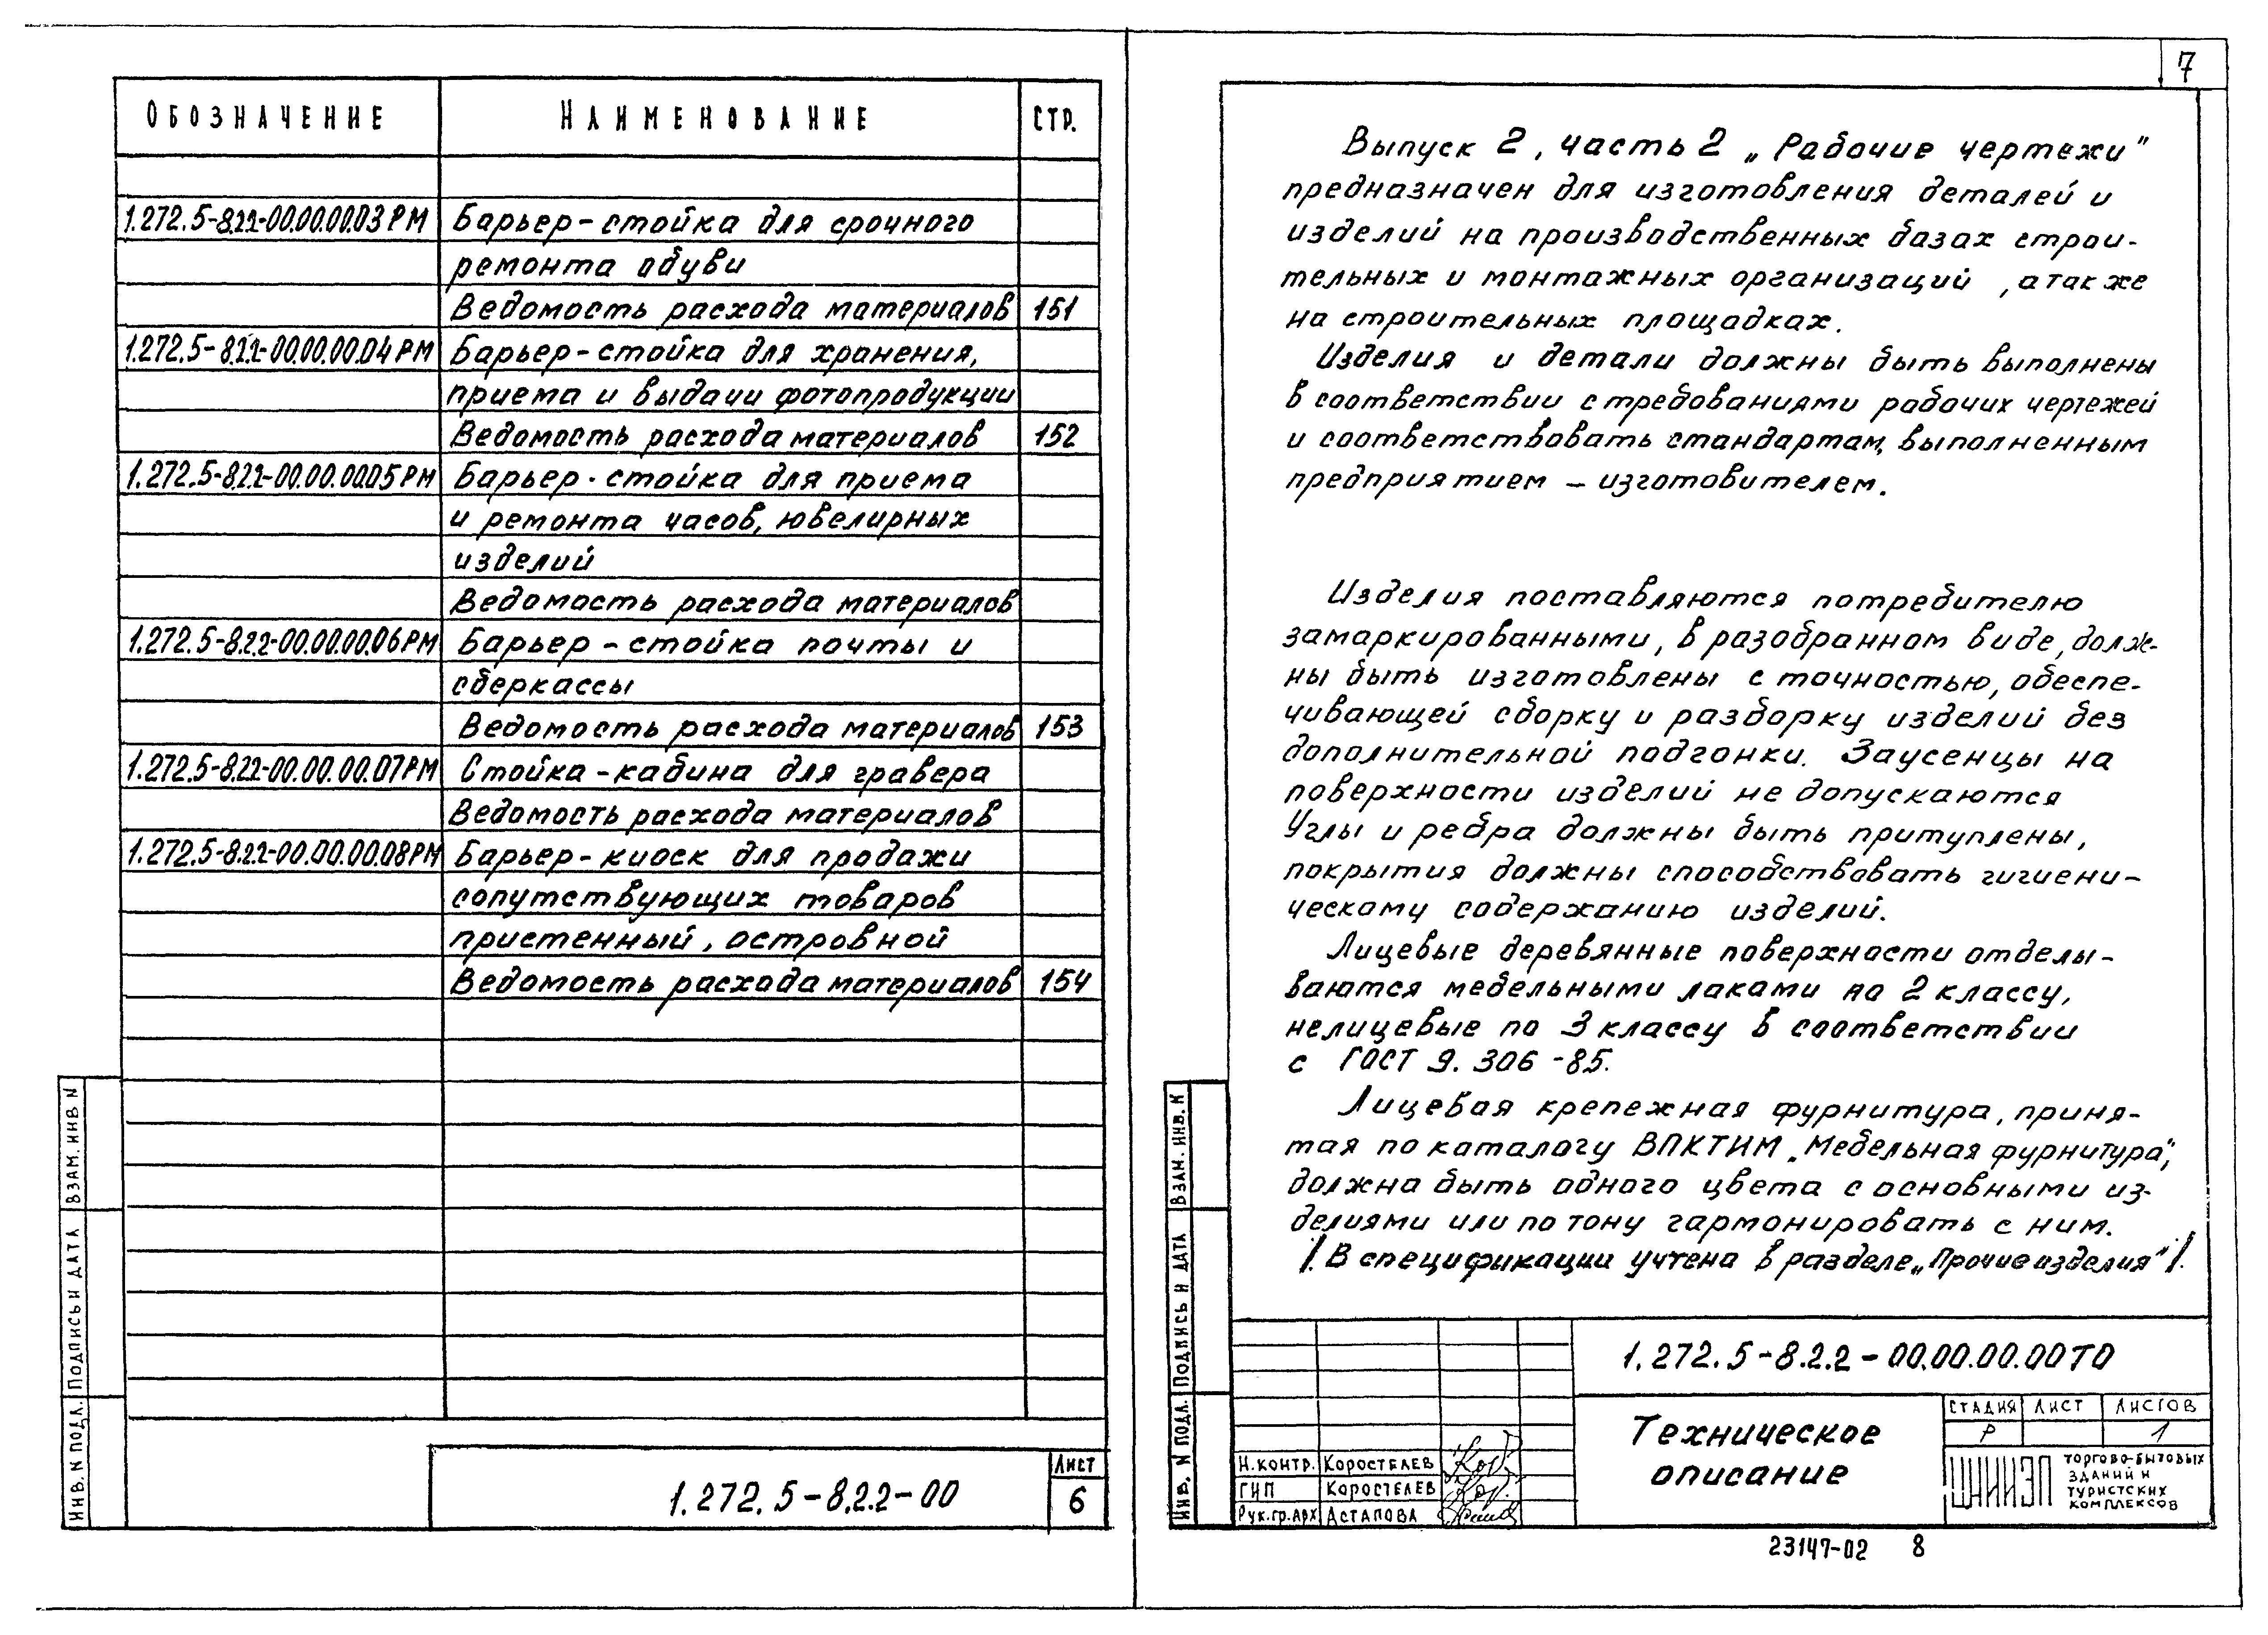 Обозначение Наименование Стр.
1.272.5-8.2.2-00.00.00.03РМ Барьер-стойка для срочного
ремонта обуви
Ведомость расхода материалов 151
1.272.5-8.2.2-00.00.00.04РМ Барьер-стойка для хранения,
приема и выдачи фотопродукции
Ведомость расхода материалов 152
1.272.5-8.2.2-00.00.00.05РМ Барьер-стойка для приема
и ремонта часов, ювелирных
изделий
Ведомость расхода материалов
1.272.5-8.2.2-00.00.00.06РМ Барьер-стойка почты и
сберкассы
Ведомость расхода материалов 153
1.272.5-8.2.2-00.00.00.07РМ Стойка-кабина для гравера
Ведомость расхода материалов
1.272.5-8.2.2-00.00.00.08РМ Барьер-киоск для продажи
сопутствующих товаров
пристенный, островной
Ведомость расхода материалов 154
Инв. N подл. Подпись и дата Взам. инв N
1.272.5-8.2.2-00
Лист
6
7
Выпуск 2, часть 2 „Рабочие чертежи"
предназначен для изготовления деталей и
изделий на производственных базах строи-
тельных и монтажных организаций, а также
на строительных площадках.
Изделия и детали должны быть выполнены
в соответствии с требованиями рабочих чертежей
и соответствовать стандартам, выполненным
предприятием – изготовителем.
Изделия поставляются потребителю
замаркированными, в разобранном виде, долж-
ны быть изготовлены с точностью, обеспе-
чивающей сборку и разборку изделий без
дополнительной подгонки. Заусенцы на
поверхности изделий не допускаются
Углы и ребра должны быть притуплены,
покрытия должны способствовать гигиени-
ческому содержанию изделий.
Лицевые деревянные поверхности отделы-
ваются мебельными лаками по 2 классу,
нелицевые по 3 классу в соответствии
с ГОСТ 9.306-85.
Лицевая крепежная фурнитура, приня-
тая по каталогу ВПКТИМ „Мебельная фурнитура",
должна быть одного цвета с основными из-
делиями или по тону гармонировать с ним.
/. В спецификации учтена в разделе „Прочие изделия"/.
Инв. N подл. Подпись и дата Взам. инв. N
1.272.5-8.2.2-00.00.00.00ТО
Техническое
описание
Стадия Лист Листов
Р 1
Н.контр. Коростелев
ГИП Коростелев
Рук.гр.арх Астапова
ЦНИИЭП
торгово-бытовых
зданий и
туристских
комплексов
23147-02 8